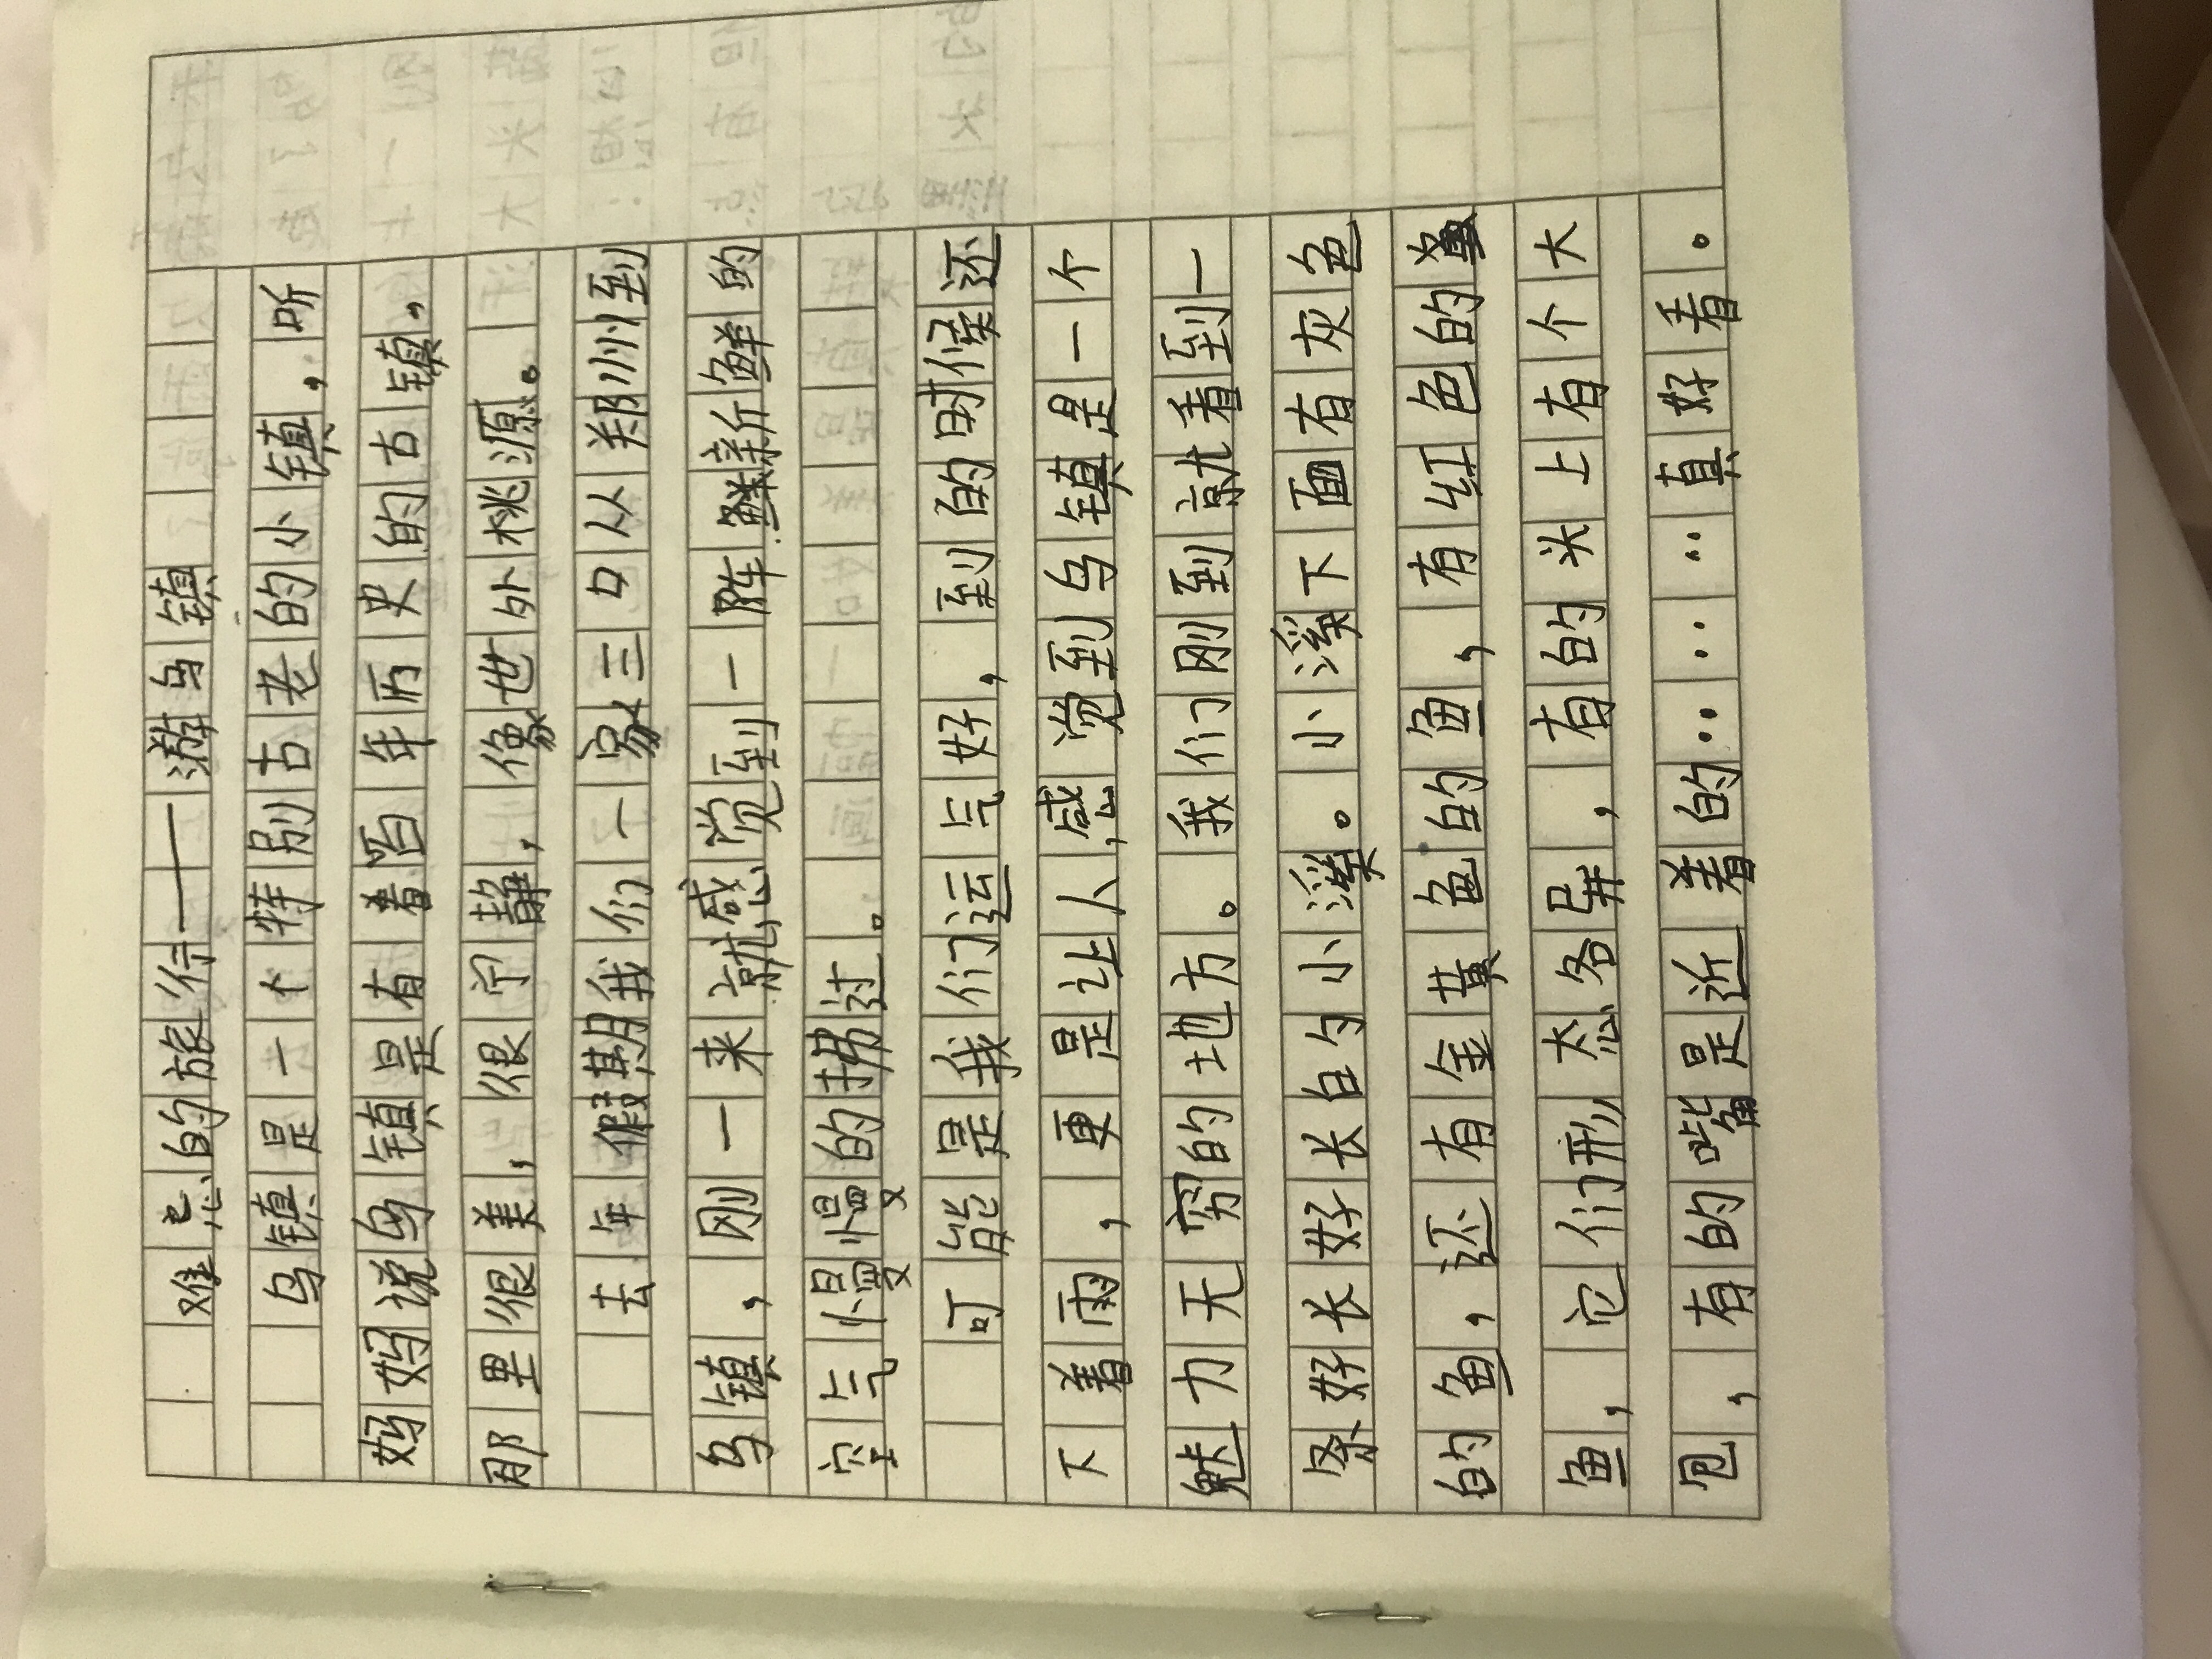 难忘的旅行——游乌镇
乌镇是一个特别古老的小镇，听
妈妈说乌镇是有着百年历史的古镇，
那里很美，很宁静，像世外桃源。
去年假期我们一家三口从郑州到
乌镇，刚一来就感觉到一阵新鲜的
空气慢慢的拂过。
可能是我们运气好，到的时候还
下着雨，更是让人感觉到乌镇是一个
魅力无穷的地方。我们刚到就看到一
条好长好长的小溪。小溪下面有灰色
的鱼，还有金黄色的鱼，有红色的
鱼，它们形态各异，有的头上有个大
包，有的嘴是近着的……真好看。